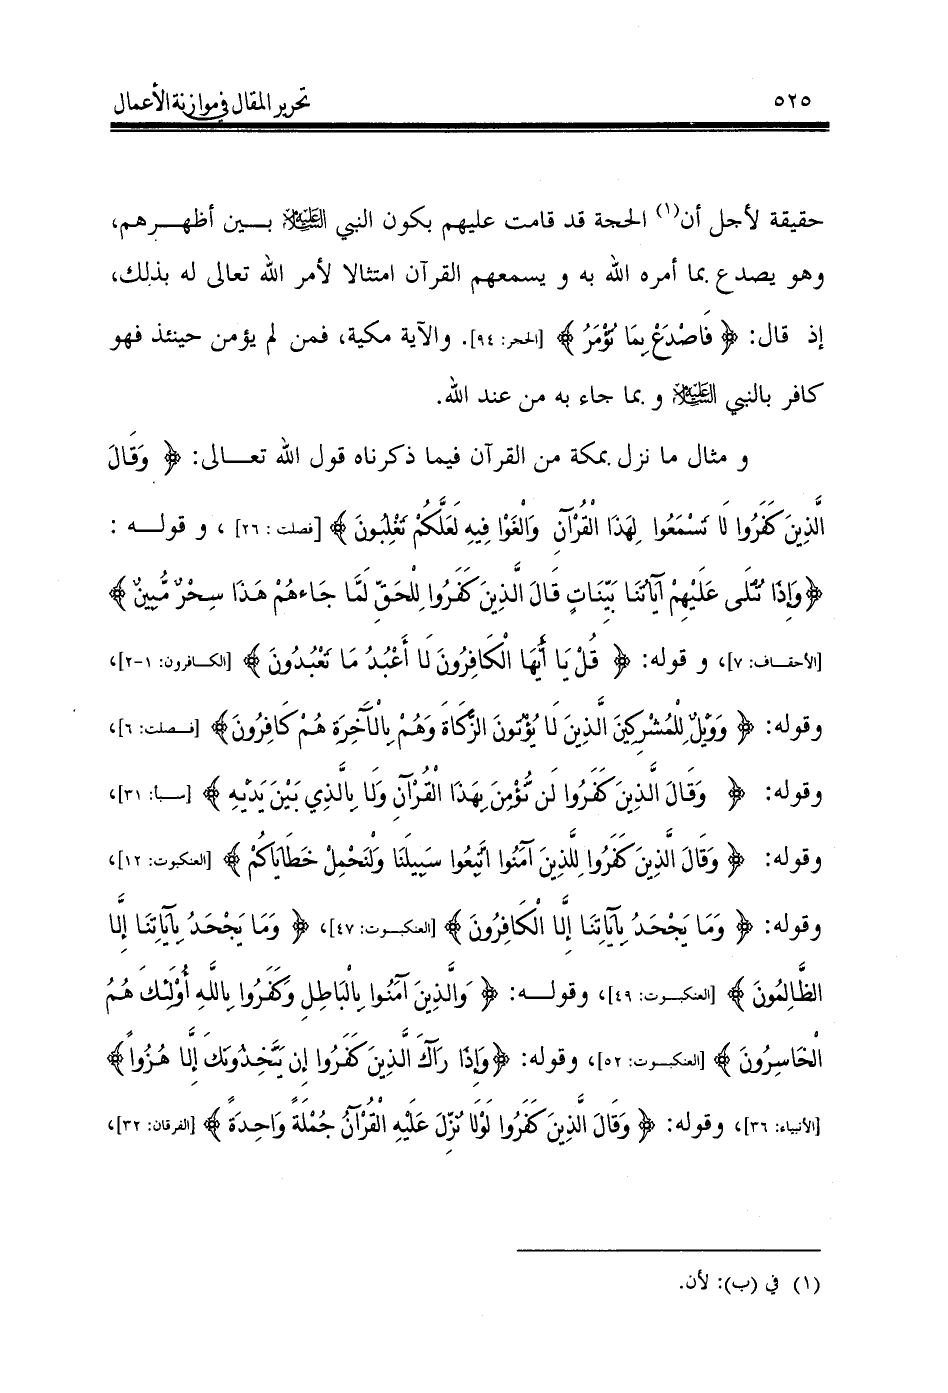 ٥٢٥ تحرير المقال في موازنة الأعمال
حقيقة لأجل أن(١) الحجة قد قامت عليهم بكون النبي عليه السلام بين أظهرهم،
وهو يصدع بما أمره الله به و يسمعهم القرآن امتثالا لأمر الله تعالى له بذلك،
إذ قال: ﴿ فَاصْدَعْ بِمَا تُؤْمَرُ ﴾ [الحجر: ٩٤]. والآية مكية، فمن لم يؤمن حينئذ فهو
كافر بالنبي عليه السلام و بما جاء به من عند الله.
و مثال ما نزل بمكة من القرآن فيما ذكرناه قول الله تعالى: ﴿ وَقَالَ
الَّذِينَ كَفَرُوا لَا تَسْمَعُوا لِهَذَا الْقُرْآنِ وَالْغَوْا فِيهِ لَعَلَّكُمْ تَغْلِبُونَ ﴾ [فصلت: ٢٦] ، و قوله :
﴿وَإِذَا تُتْلَى عَلَيْهِمْ آيَاتُنَا بَيِّنَاتٍ قَالَ الَّذِينَ كَفَرُوا لِلْحَقِّ لَمَّا جَاءهُمْ هَذَا سِحْرٌ مُّبِينٌ ﴾
[الأحقاف: ٧]، و قوله: ﴿ قُلْ يَا أَيُّهَا الْكَافِرُونَ لَا أَعْبُدُ مَا تَعْبُدُونَ ﴾ [الكافرون: ١-٢]،
وقوله: ﴿ وَوَيْلٌ لِّلْمُشْرِكِينَ الَّذِينَ لَا يُؤْتُونَ الزَّكَاةَ وَهُمْ بِالْآخِرَةِ هُمْ كَافِرُونَ﴾ [فصلت: ٦]،
وقوله: ﴿ وَقَالَ الَّذِينَ كَفَرُوا لَن نُّؤْمِنَ بِهَذَا الْقُرْآنِ وَلَا بِالَّذِي بَيْنَ يَدَيْهِ ﴾ [سبأ: ٣١]،
وقوله: ﴿ وَقَالَ الَّذِينَ كَفَرُوا لِلَّذِينَ آمَنُوا اتَّبِعُوا سَبِيلَنَا وَلْنَحْمِلْ خَطَايَاكُمْ ﴾ [العنكبوت: ١٢]،
وقوله: ﴿ وَمَا يَجْحَدُ بِآيَاتِنَا إِلَّا الْكَافِرُونَ ﴾ [العنكبوت: ٤٧]، ﴿ وَمَا يَجْحَدُ بِآيَاتِنَا إِلَّا
الظَّالِمُونَ ﴾ [العنكبوت: ٤٩]، وقوله: ﴿ وَالَّذِينَ آمَنُوا بِالْبَاطِلِ وَكَفَرُوا بِاللَّهِ أُوْلَئِكَ هُمُ
الْخَاسِرُونَ ﴾ [العنكبوت: ٥٢]، وقوله: ﴿وَإِذَا رَآكَ الَّذِينَ كَفَرُوا إِن يَتَّخِذُونَكَ إِلَّا هُزُواً﴾
[الأنبياء: ٣٦]، وقوله: ﴿ وَقَالَ الَّذِينَ كَفَرُوا لَوْلَا نُزِّلَ عَلَيْهِ الْقُرْآنُ جُمْلَةً وَاحِدَةً ﴾ [الفرقان: ٣٢]،
(١) في (ب): لأن.